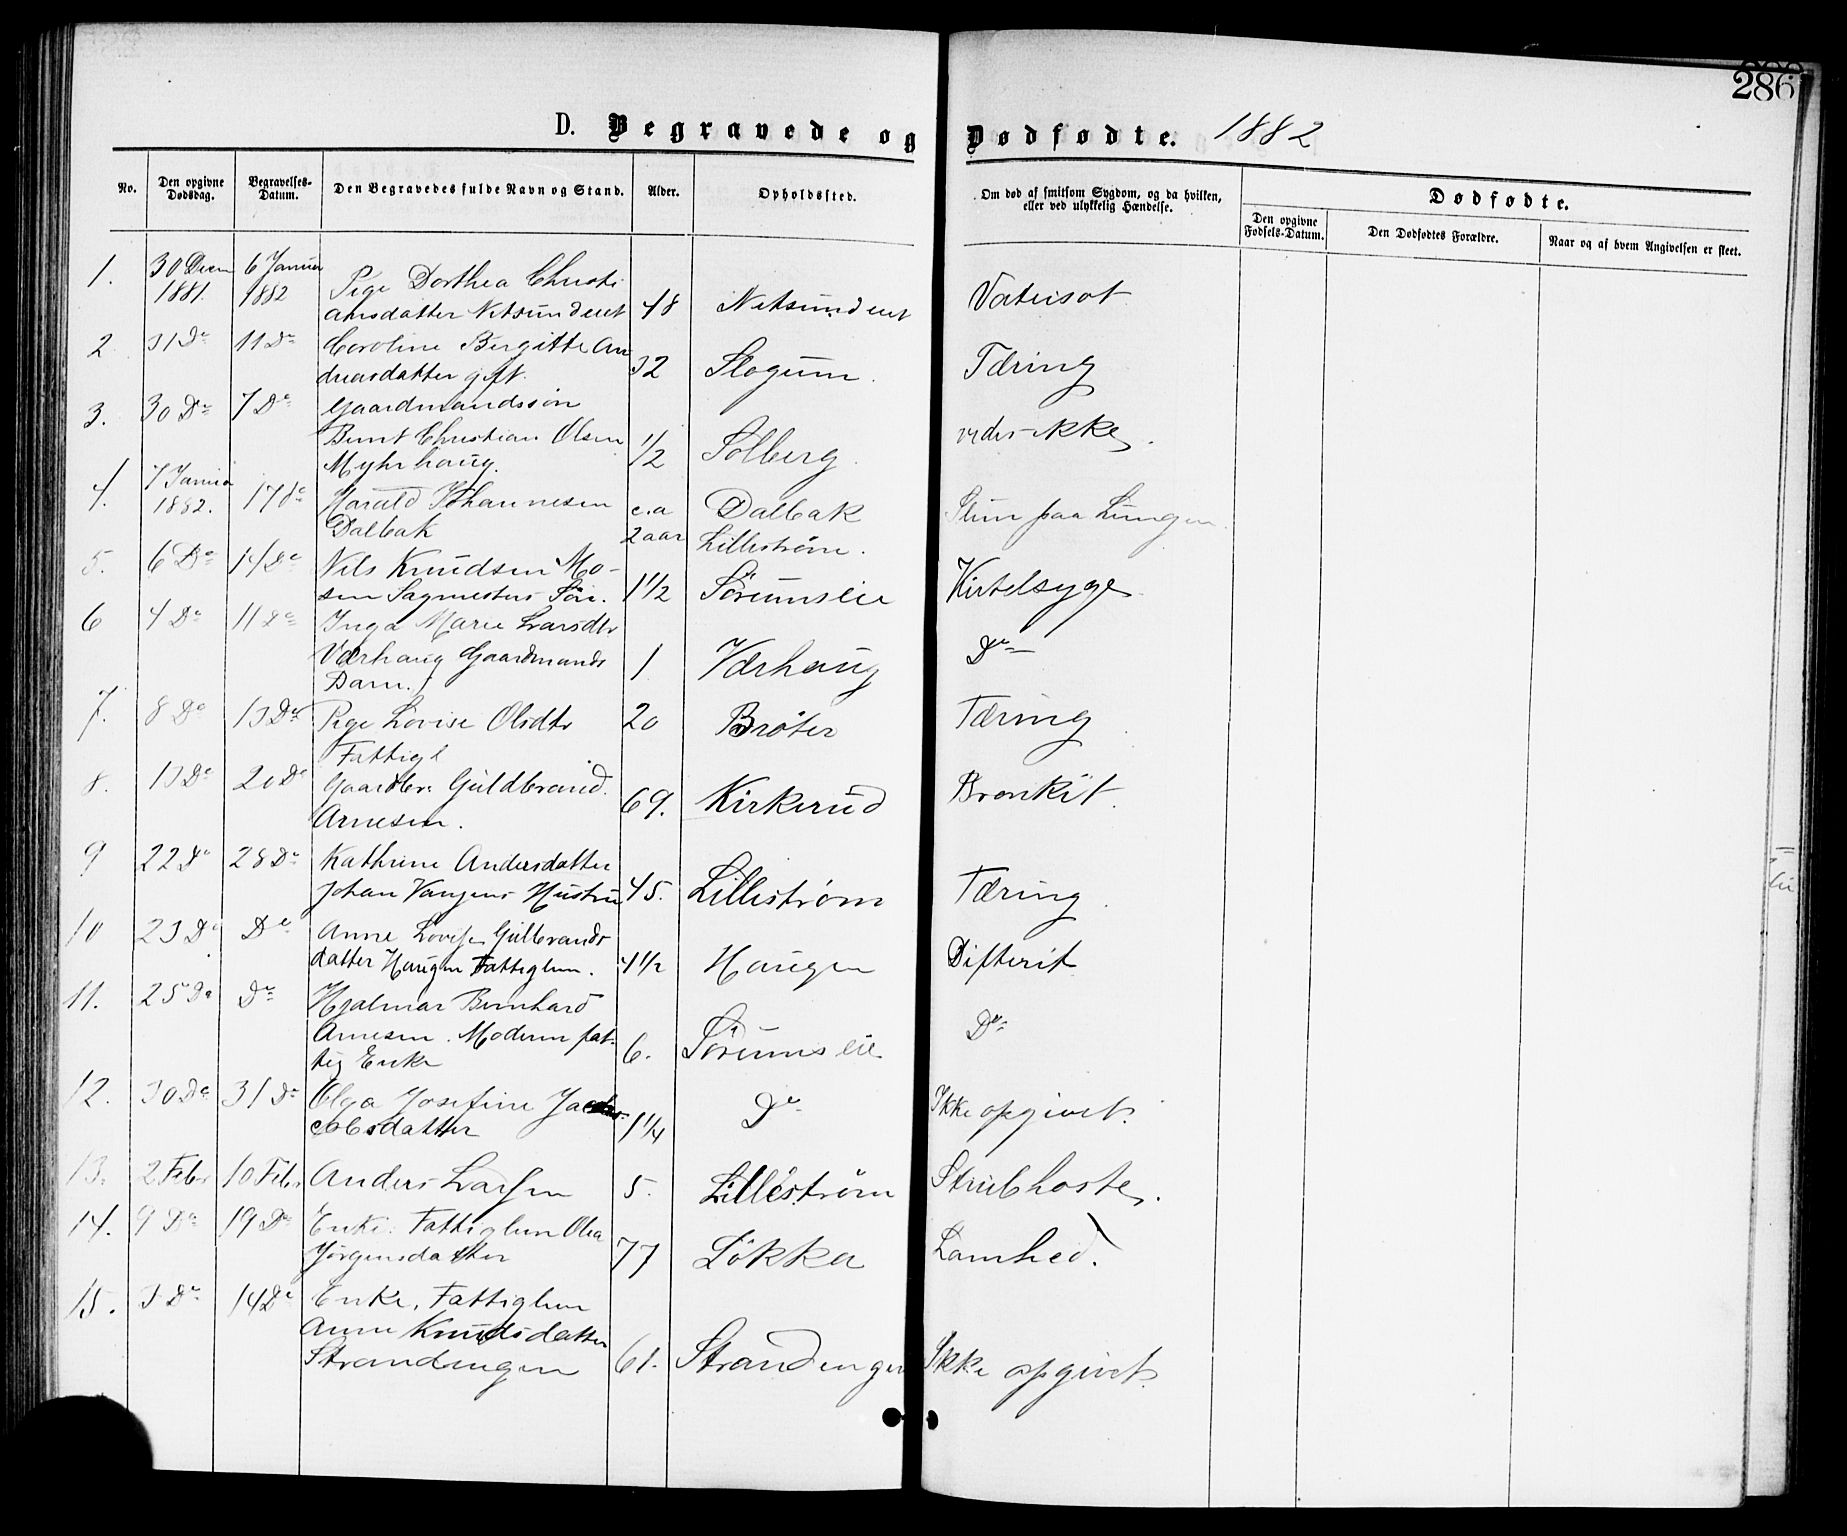 286
D. Begravede og Dødfødte. 1882
No. Den opgivne Dødsdag. Begravelses-Datum. Den Begravedes fulde Navn og Stand. Alder. Opholdssted. Om død af smitsom Sygdom, og da hvilken, eller ved ulykkelig Hændelse. Dødfødte.
Den opgivne Fødsels-Datum. Den Dødfødtes Forældre. Naar og af hvem Angivelsen er skeet.
1. 30 Decm 6 Januar Pige Dorthea Christi
1881. 1882 ansdatter Nitsundeiet 48 Nitsundeiet Vatersot
2 31 De 11 De Caroline Birgitte An
dreasdatter gift. 32 Slogum. Tæring
3. 30 De 7 De Gaardmandssøn
Bernt Christian Olsen
Myhrhaug. 1/2 Solberg vides ikke.
4. 7 Janua 17 De Harald Johannesen c.a Dalbak Sliim paa Lungen
1882. Dalbak 2 aar Lillestrøm.
5. 6 De 14 De Nils Knudsen Mo-
sen Sagmesters Søn. 1 1/2 Sørumseie Kirtelsyge
6 4 De 11 De Inga Marie Larsdtr
Værhaug Gaardmands 1 Værhaug De
Barn.
7. 8 De 13 De Pige Lovise Olsdtr 20 Brøter Tæring
Fattigl
8. 13 De 20 De Gaardbr. Guldbrand.
Arnesen. 69. Kirkerud Bronkit
9 22 De 28 De Kathrine Andersdatter
Johan Vangens Hustru 45. Lillestrøm Tæring
10 23 De De Anne Lovise Gulbrands
datter Haugen Fattiglem. 4 1/2 Haugen Difterit
11. 25 De De Hjalmar Bernhard
Arnesen. Moderen fat-
tig Enke 6. Sørumseie De
12. 30 De 31 De Olga Josefine Ja
cobsdatter 1 1/4 De Ikke opgivet.
13. 2 Febr 10 Febr Anders Larsen 5. Lillestrøm Strubhoste.
14. 9 De 19 De Enke. Fattiglem Olea
Jørgensdatter 77 Løkka Lamhed.
15. 3 De 14 De Enke, Fattiglem
Anne Knudsdatter
Strandengen 61. Strandengen Ikke opgivet.